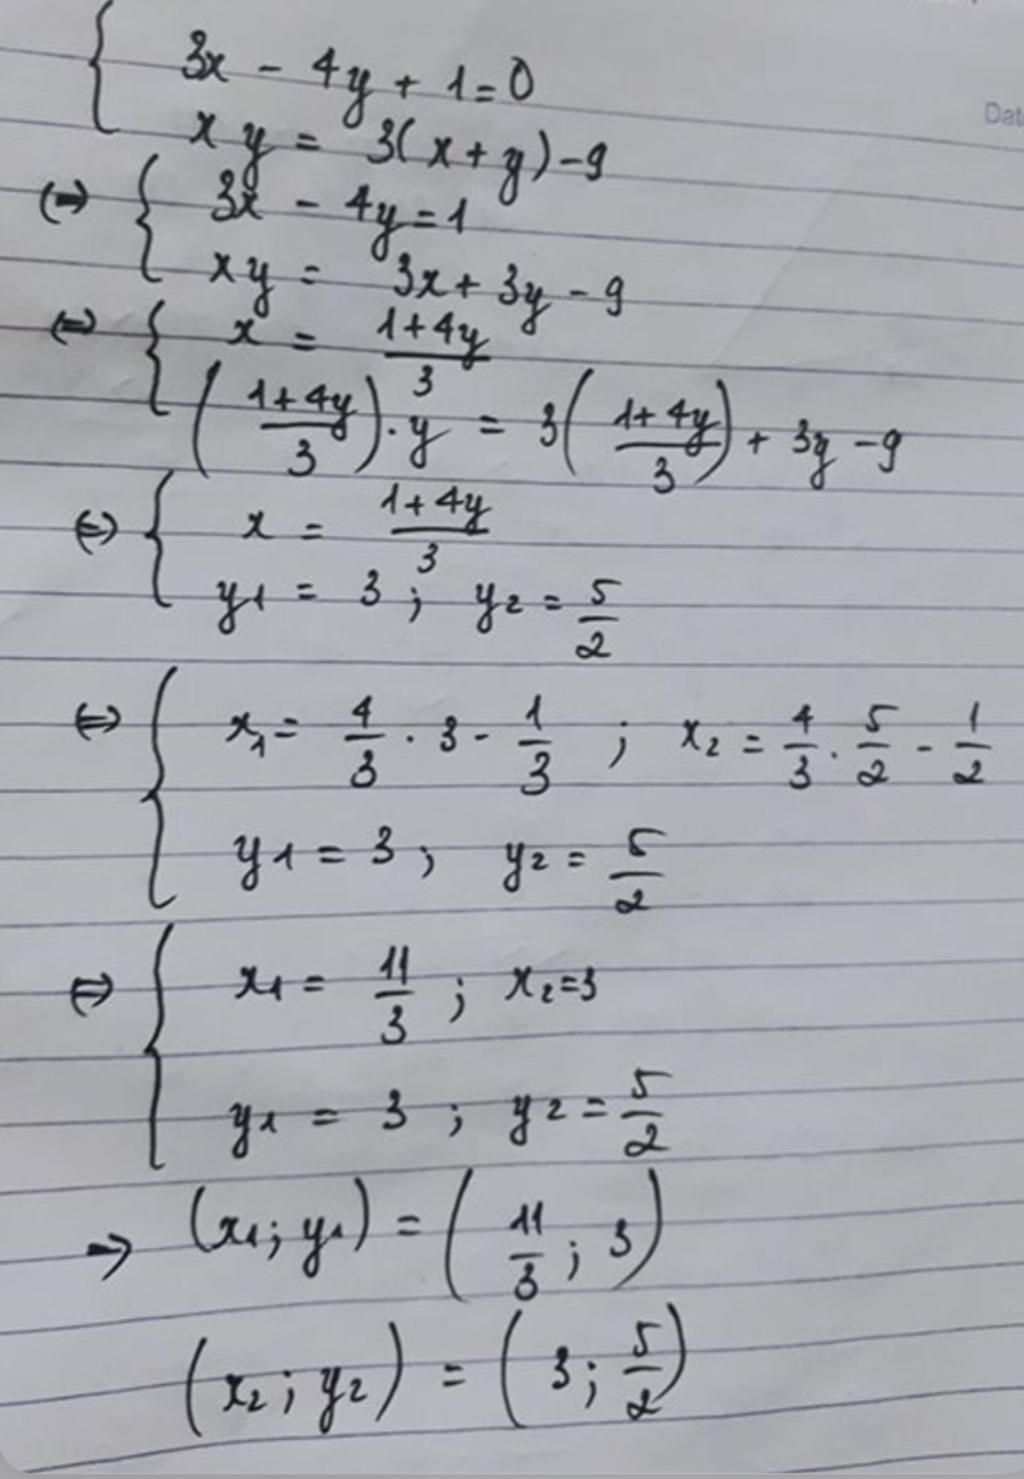 { 3x - 4y + 1 = 0
x y = 3(x + y) - 9
(=) { 3x - 4y = 1
xy = 3x + 3y - 9
(=) { x = (1 + 4y)/3
((1 + 4y)/3) . y = 3((1 + 4y)/3) + 3y - 9
(=) { x = (1 + 4y)/3
y1 = 3 ; y2 = 5/2
(=) { x1 = 4/3 . 3 - 1/3 ; x2 = 4/3 . 5/2 - 1/2
y1 = 3 ; y2 = 5/2
(=) { x1 = 11/3 ; x2 = 3
y1 = 3 ; y2 = 5/2
=> (x1 ; y1) = (11/3 ; 3)
(x2 ; y2) = (3 ; 5/2)